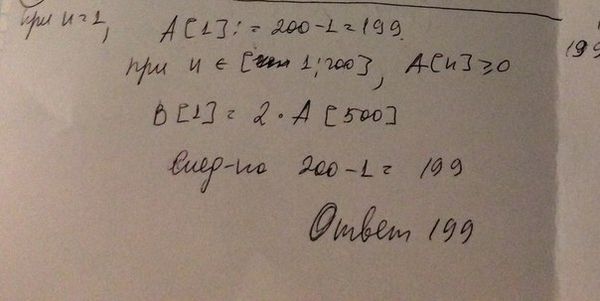 при n=1, A[1]:=200-1=199.
при n ∈ [1;200], A[n]≥0
B[1]=2·A[500]
след-но 200-1= 199
Ответ 199